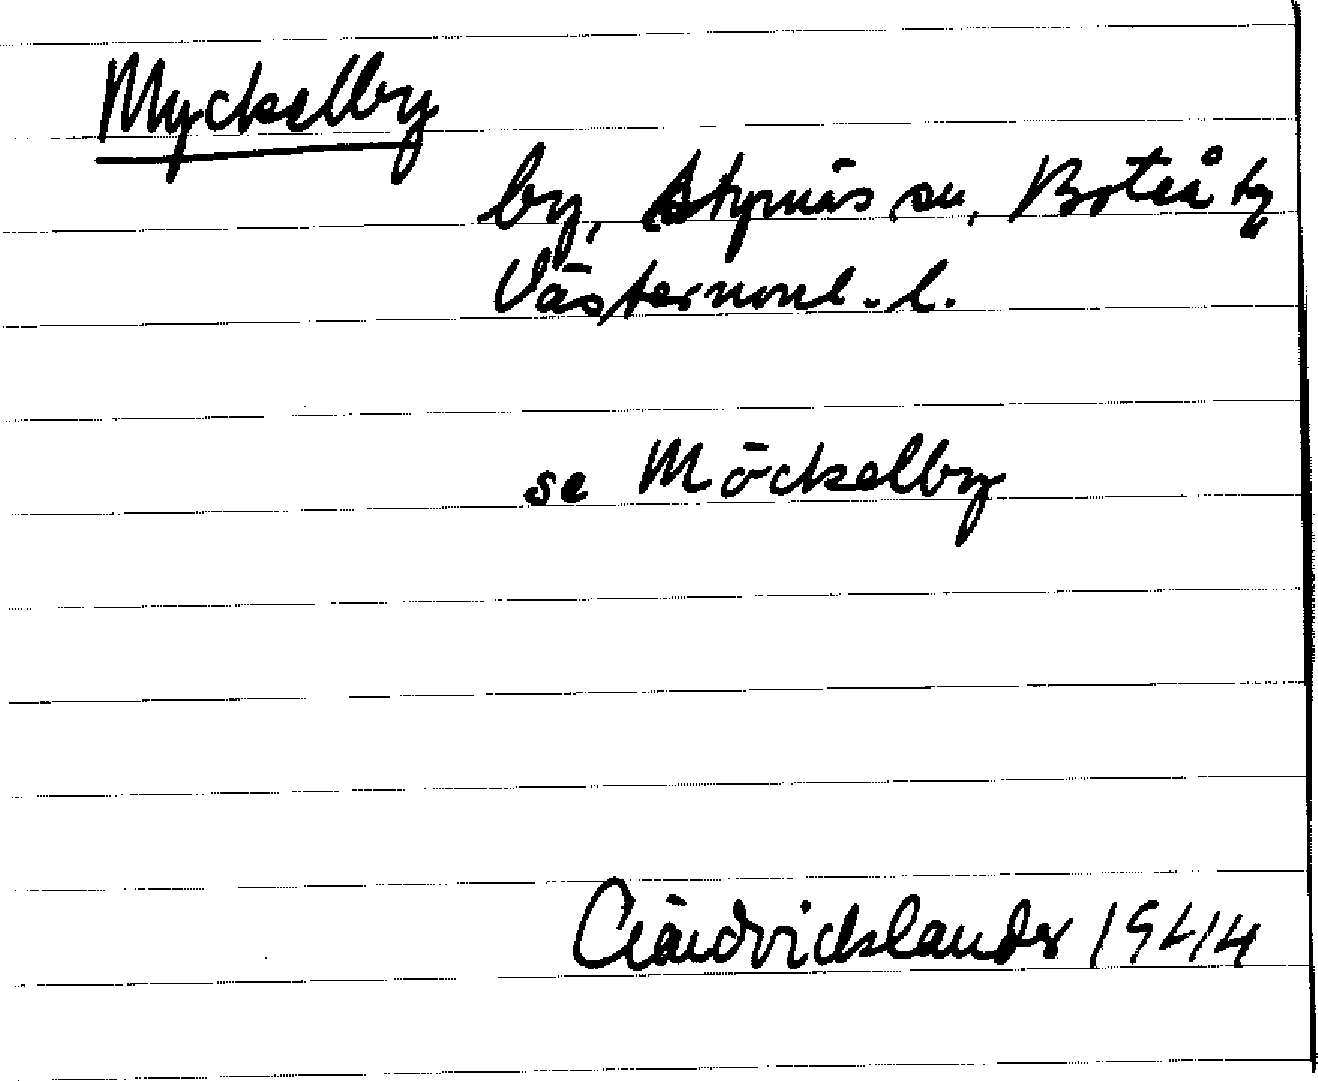 Myckelby
by, Styrnäs sn, Boteå tg
Västernorrl. l.
se Möckelby
1944